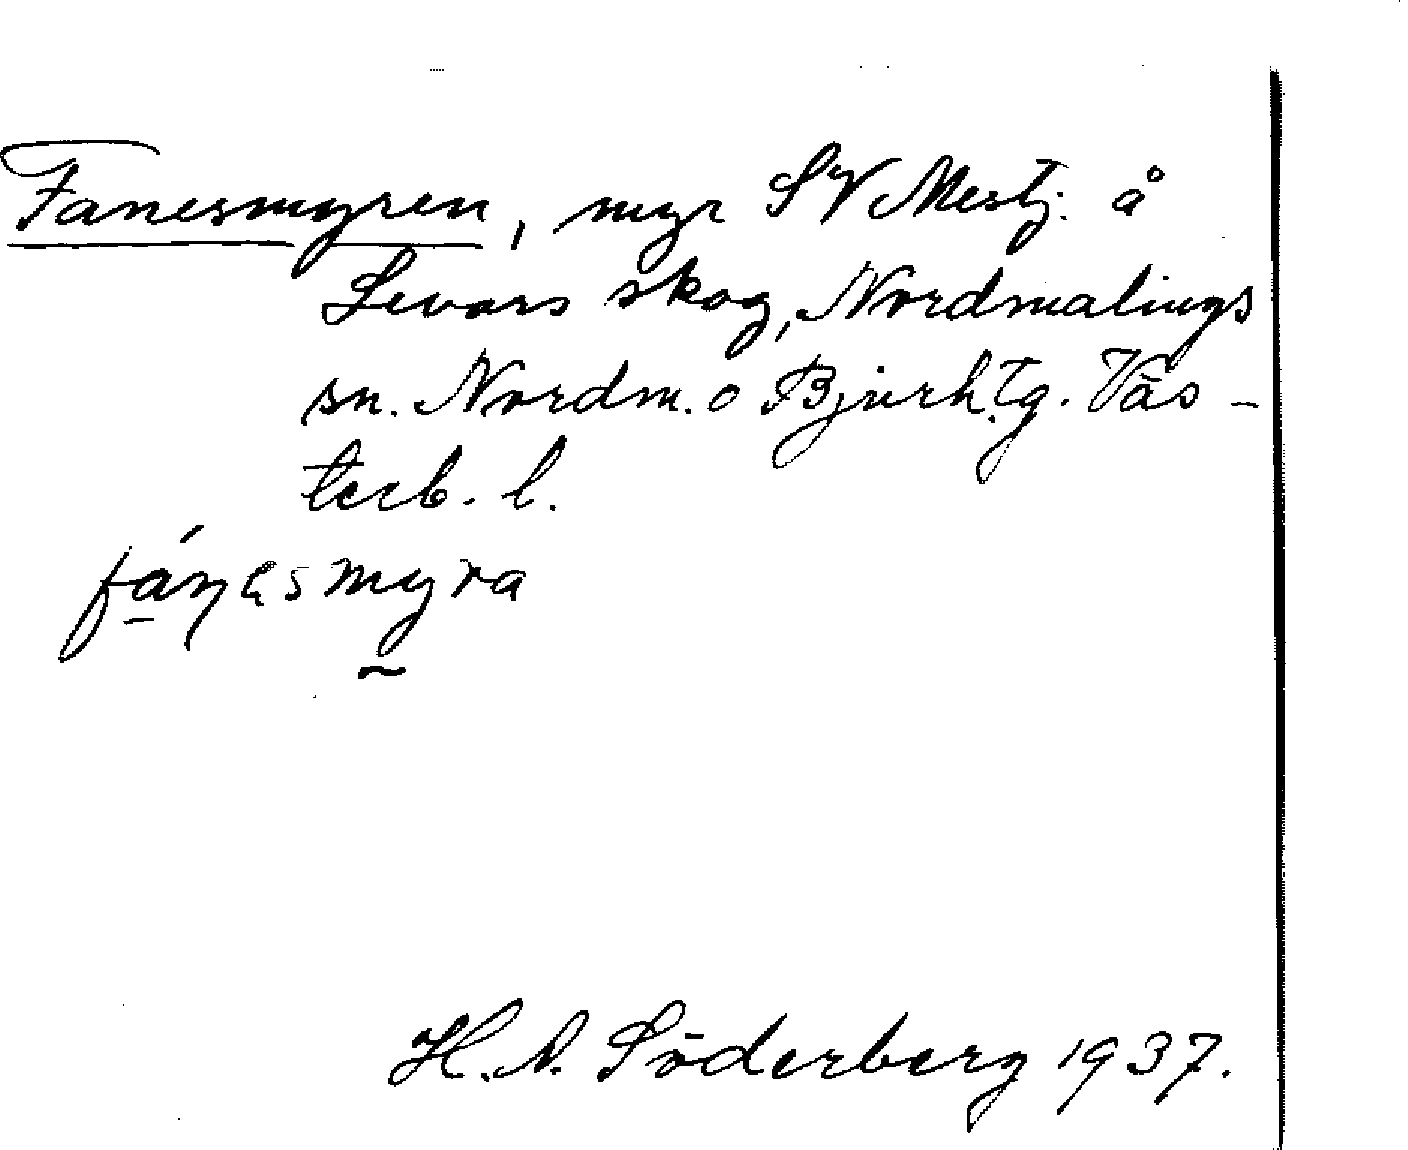 Fanesmyren, myr SV Mestj. å
Levars skog, Nordmalings
sn. Nordm. o Bjurh. tg. Väs-
terb. l.
fánesmyra
H. N. Söderberg 1937.